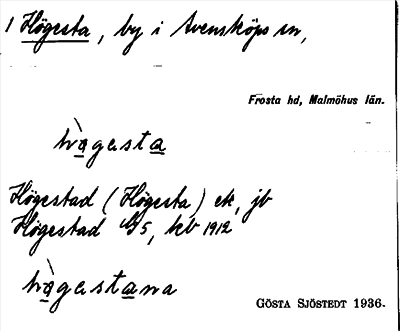 1 Högesta, by i Svensköps sn,
Frosta hd, Malmöhus län.
hàgesta
Högestad (Högesta) ek, jb
Högestad 5, kb 1912
hàgestana
GÖSTA SJÖSTEDT 1936.